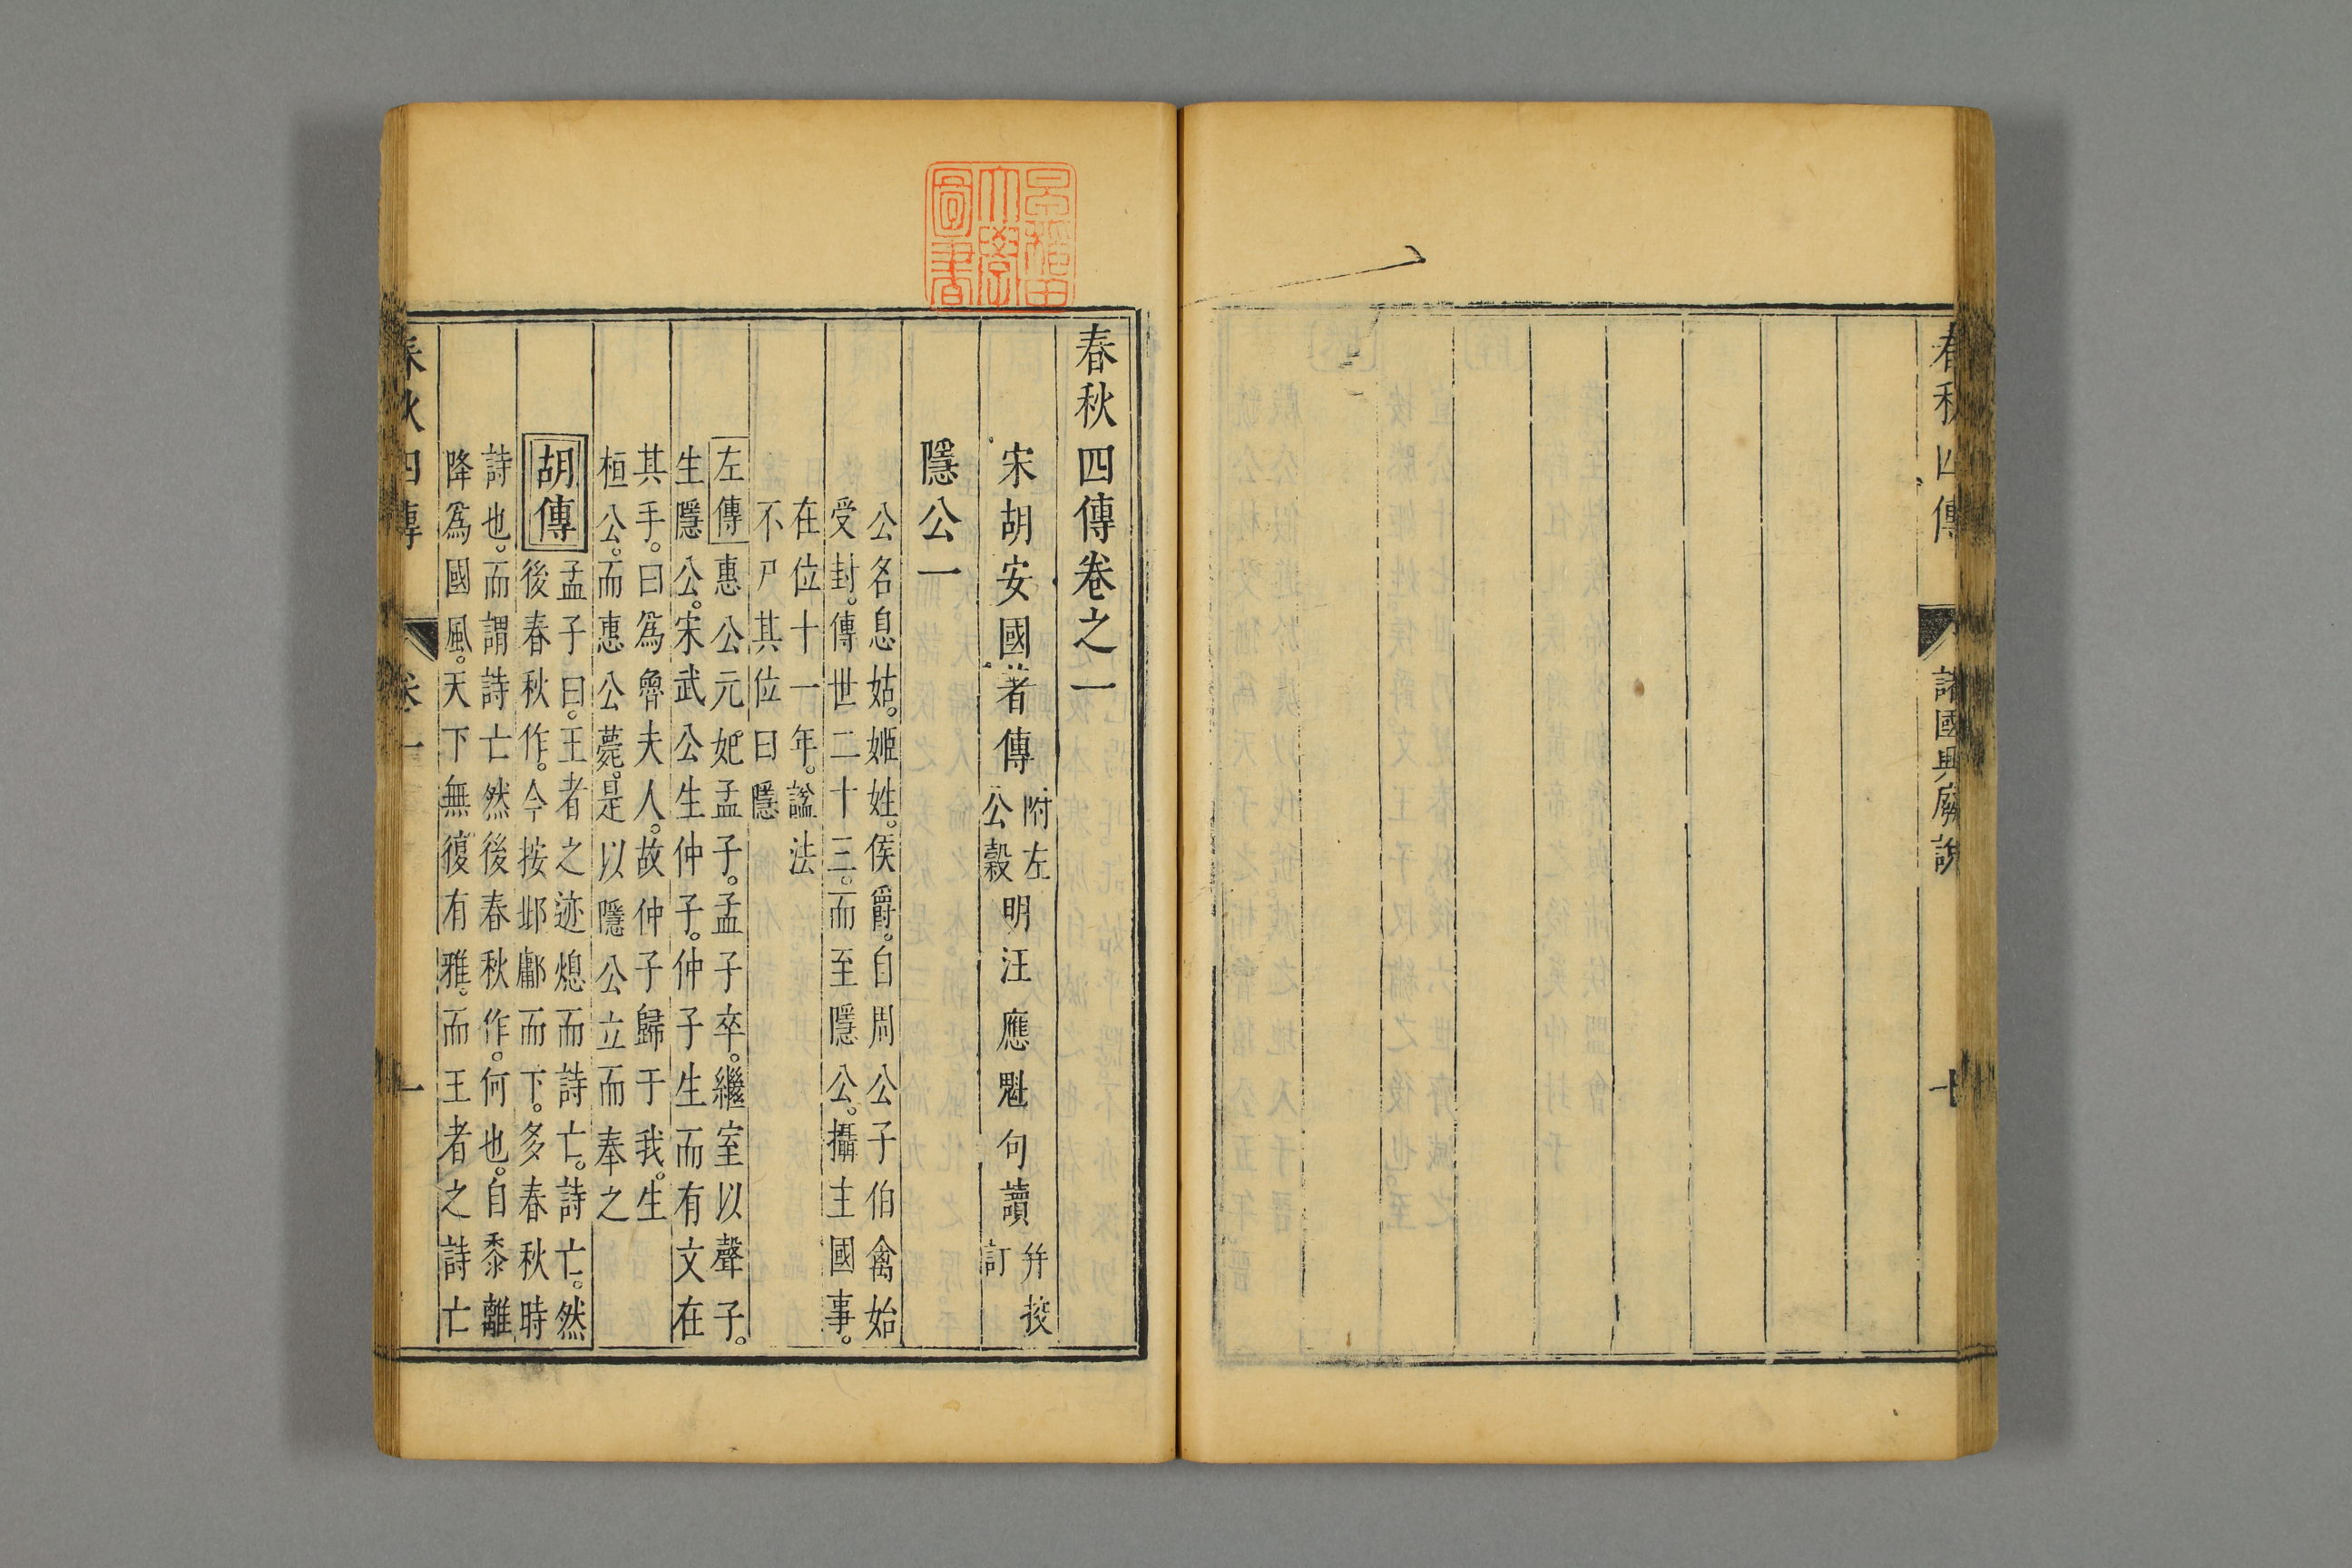 春秋四傳
諸國興廢說
十
早稻田
大學
圖書
春秋四傳卷之一
宋胡安國著傳
附左
公穀
明汪應魁句讀
并挍
訂
隱公一
公名息姑。姬姓。侯爵。自周公子伯禽始
受封。傳世二十三。而至隱公。攝主國事。
在位十一年。諡法
不尸其位曰隱
左傳惠公元妃孟子。孟子卒。繼室以聲子。
生隱公。宋武公生仲子。仲子生而有文在
其手。曰爲魯夫人。故仲子歸于我。生
桓公。而惠公薨。是以隱公立而奉之
胡傳
孟子。曰。王者之迹熄而詩亡。詩亡。然
後春秋作。今按邶鄘而下。多春秋時
詩也。而謂詩亡然後春秋作。何也。自黍離
降爲國風。天下無復有雅。而王者之詩亡
春秋四傳
卷一
一